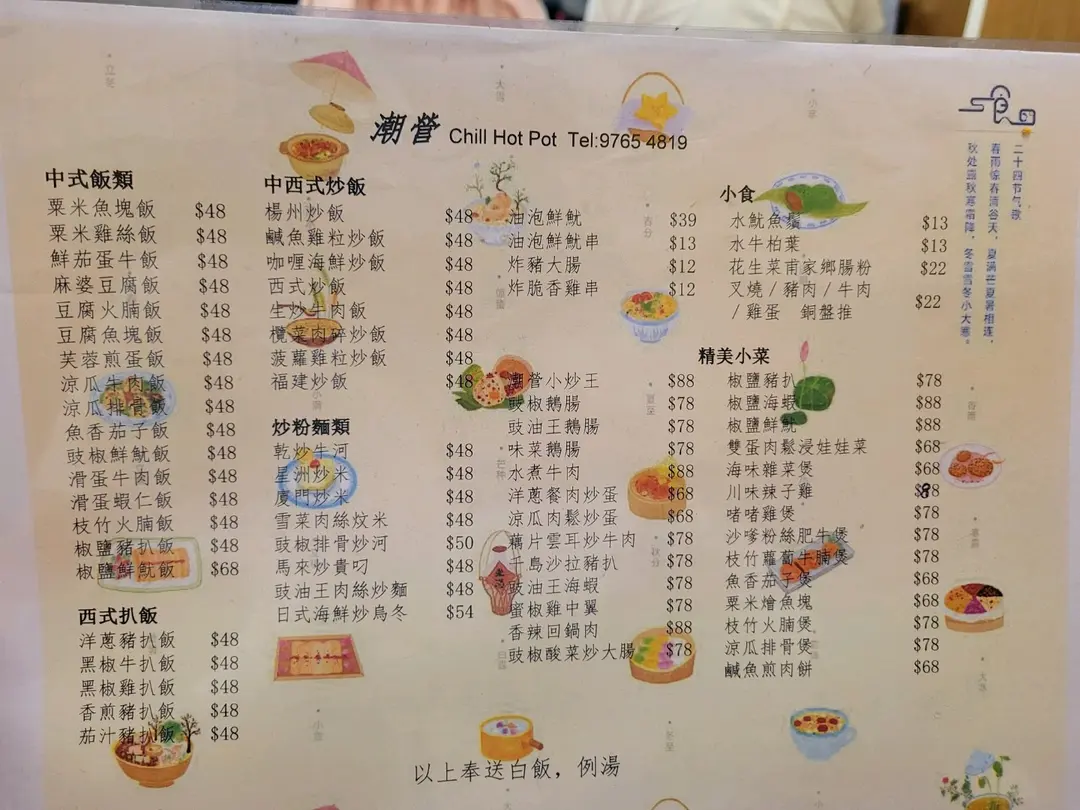 潮營 Chill Hot Pot Tel:9765 4819
中式飯類
粟米魚塊飯 $48
粟米雞絲飯 $48
鮮茄蛋牛飯 $48
麻婆豆腐飯 $48
豆腐火腩飯 $48
豆腐魚塊飯 $48
芙蓉煎蛋飯 $48
涼瓜牛肉飯 $48
涼瓜排骨飯 $48
魚香茄子飯 $48
豉椒鮮魷飯 $48
滑蛋牛肉飯 $48
滑蛋蝦仁飯 $48
枝竹火腩飯 $48
椒鹽豬扒飯 $48
椒鹽鮮魷飯 $68
西式扒飯
洋蔥豬扒飯 $48
黑椒牛扒飯 $48
黑椒雞扒飯 $48
香煎豬扒飯 $48
茄汁豬扒飯 $48
中西式炒飯
楊州炒飯 $48
鹹魚雞粒炒飯 $48
咖喱海鮮炒飯 $48
西式炒飯 $48
生炒牛肉飯 $48
欖菜肉碎炒飯 $48
菠蘿雞粒炒飯 $48
福建炒飯 $48
炒粉麵類
乾炒牛河 $48
星洲炒米 $48
廈門炒米 $48
雪菜肉絲炆米 $48
豉椒排骨炒河 $50
馬來炒貴叼 $48
豉油王肉絲炒麵 $48
日式海鮮炒烏冬 $54
油泡鮮魷 $39
油泡鮮魷串 $13
炸豬大腸 $12
炸脆香雞串 $12
潮營小炒王 $88
豉椒鵝腸 $78
豉油王鵝腸 $78
味菜鵝腸 $78
水煮牛肉 $88
洋蔥餐肉炒蛋 $68
涼瓜肉鬆炒蛋 $68
藕片雲耳炒牛肉 $78
千島沙拉豬扒 $78
豉油王海蝦 $78
蜜椒雞中翼 $78
香辣回鍋肉 $88
豉椒酸菜炒大腸 $78
小食
水魷魚鬚 $13
水牛柏葉 $13
花生菜甫家鄉腸粉 $22
叉燒/豬肉/牛肉
/雞蛋 銅盤推 $22
精美小菜
椒鹽豬扒 $78
椒鹽海蝦 $88
椒鹽鮮魷 $88
雙蛋肉鬆浸娃娃菜 $68
海味雜菜煲 $68
川味辣子雞
啫啫雞煲 $78
沙嗲粉絲肥牛煲 $78
枝竹蘿蔔牛腩煲 $78
魚香茄子煲 $68
粟米燴魚塊 $68
枝竹火腩煲 $78
涼瓜排骨煲 $78
鹹魚煎肉餅 $68
二十四节气歌
春雨惊春清谷天，夏满芒夏暑相连，
秋处露秋寒霜降，冬雪雪冬小大寒。
以上奉送白飯，例湯